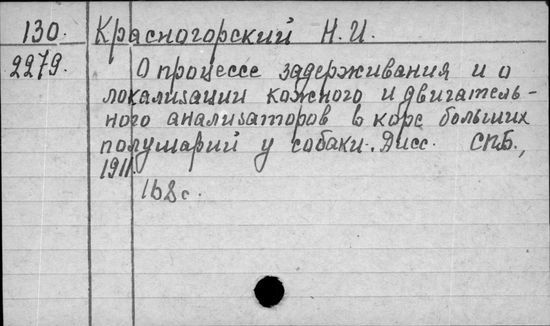 130. Красногорский Н.И.
2279. О процессе задерживания и о
локализации кожного и двигатель-
ного анализаторов в коре больших
полушарий у собаки. Дисс. СПБ.,
1911.
168 с.